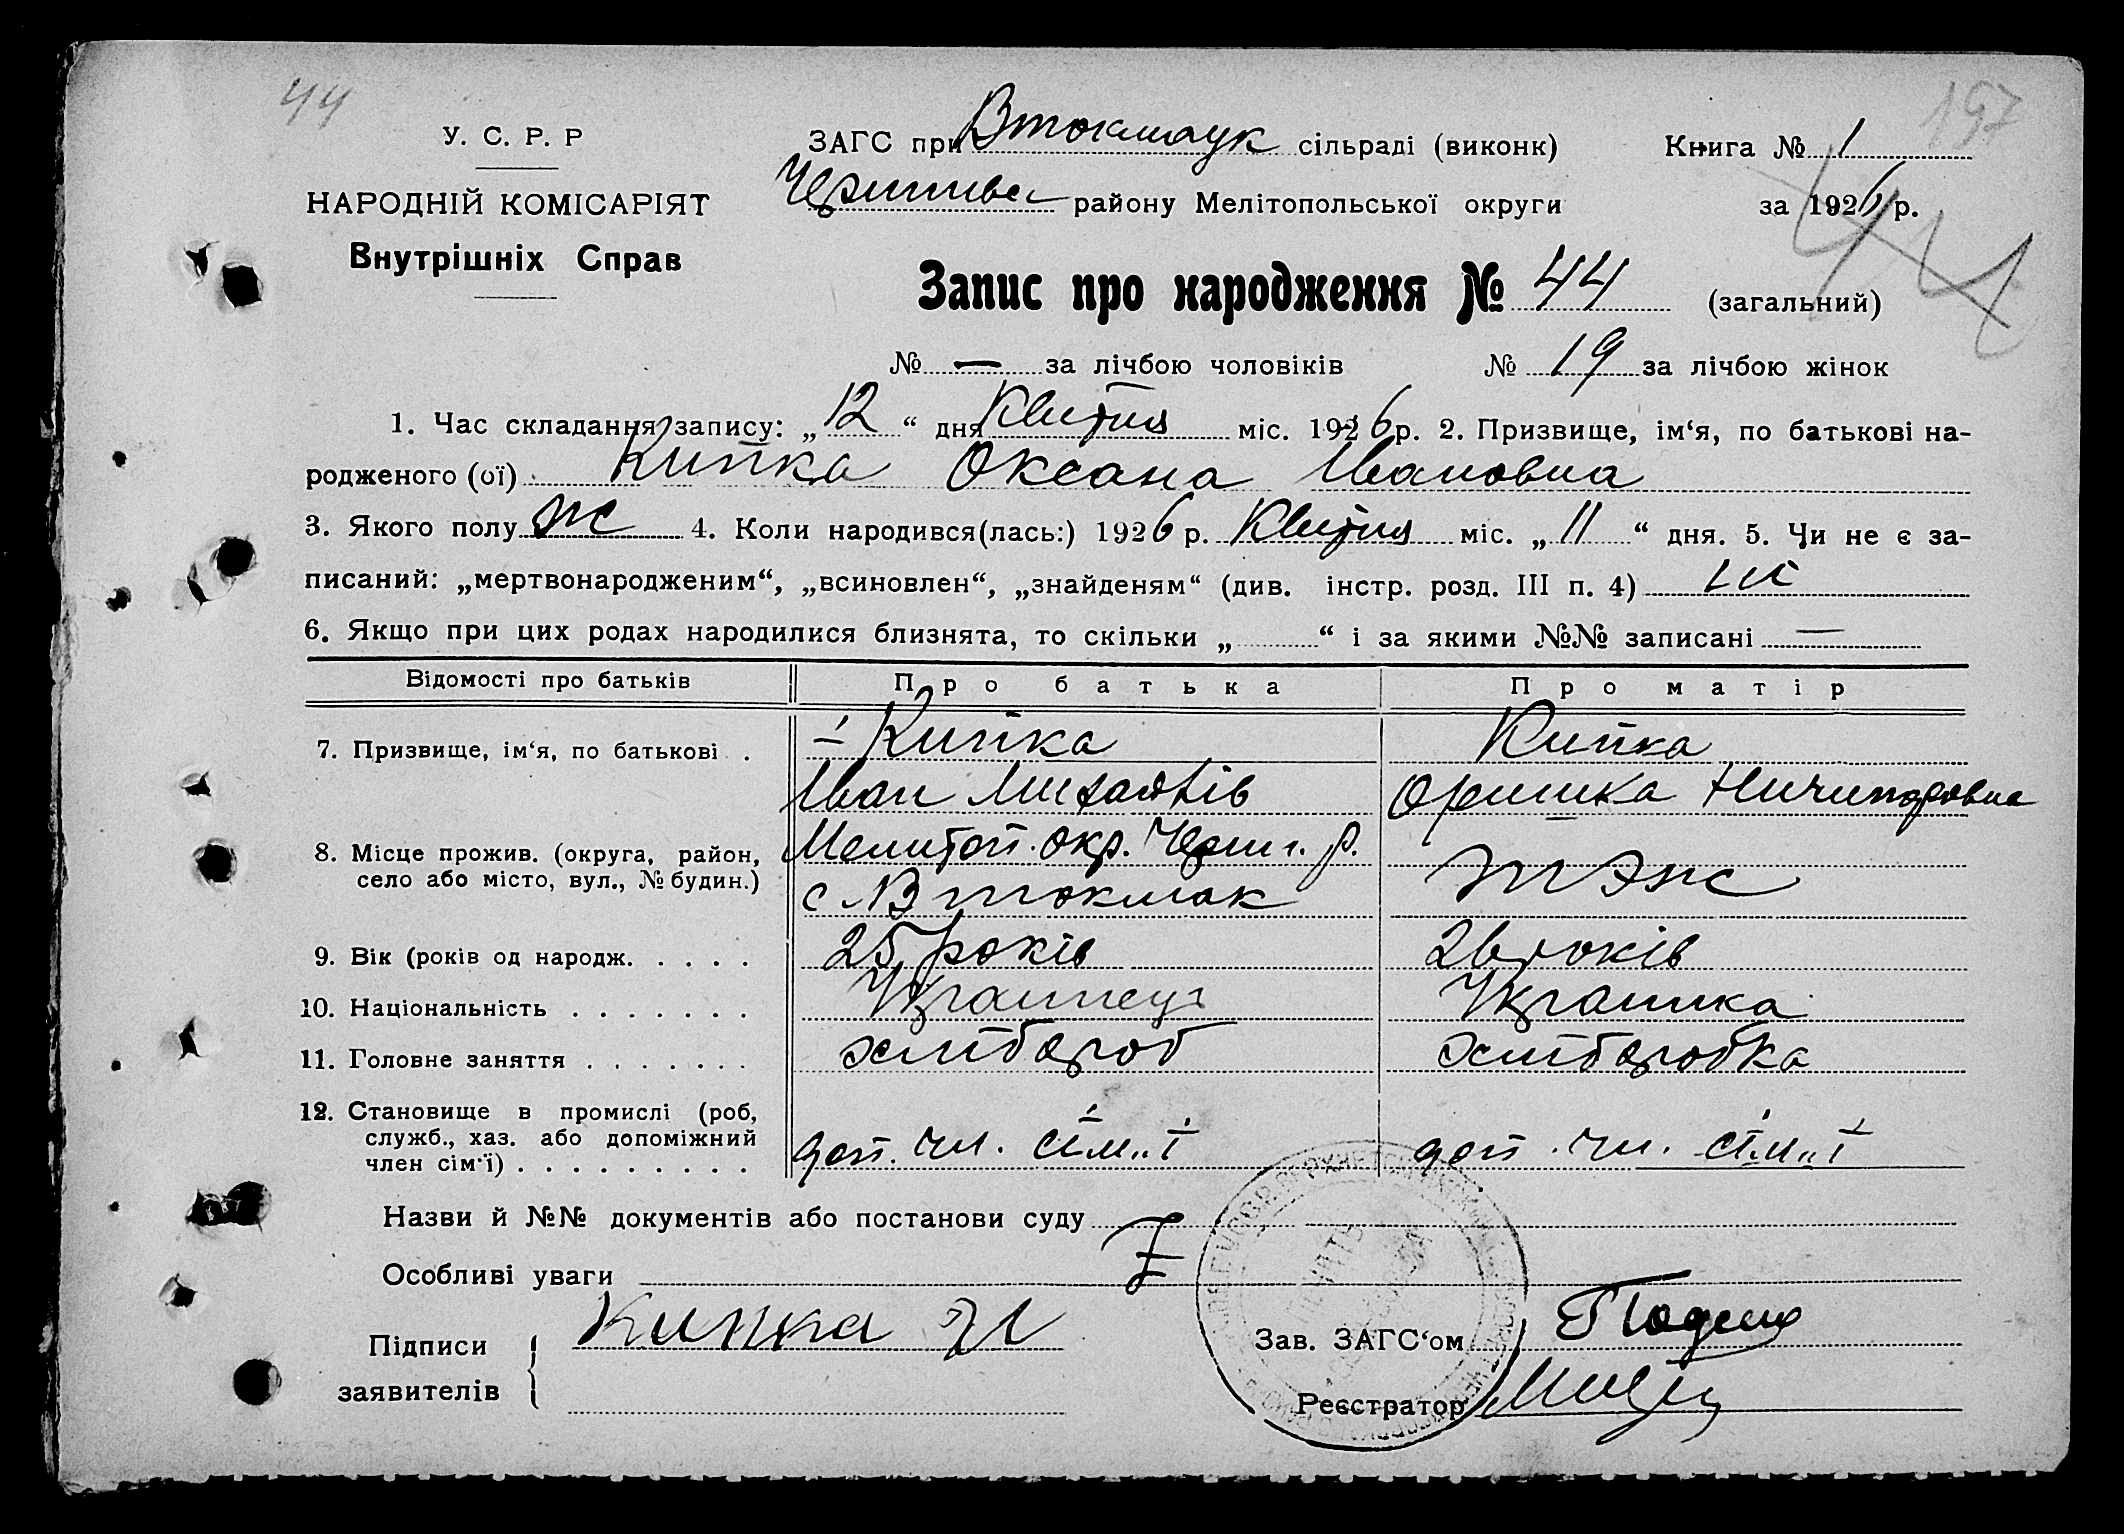 44
197
У. С. Р. Р
НАРОДНІЙ КОМІСАРІЯТ
Внутрішніх Справ
ЗАГС при Втокмаук сільраді (виконк)
Книга № 1
району Мелітопольської округи
за 1926 р.
44
Запис про народження № 44 (загальний)
№ — за лічбою чоловіків № 19 за лічбою жінок
1. Час складання запису: „ 12 “ дня Квітня міс. 1926 р. 2. Призвище, ім‘я, по батькові на-
родженого (ої) Кипка Оксана Ивановна
3. Якого полу ж 4. Коли народився(лась:) 1926 р. Квітня міс. „ 11 “ дня. 5. Чи не є за-
писаний: „мертвонародженим“, „всиновлен“, „знайденям“ (див. інстр. розд. III п. 4) ні
6. Якщо при цих родах народилися близнята, то скільки „ “ і за якими №№ записані —
Відомості про батьків Про батька Про матір
7. Призвище, ім‘я, по батькові . Кипка Кипка
Иван Михайлів Оришка Ничипоровна
8. Місце прожив. (округа, район, Мелитоп. окр. Черниг. р.
село або місто, вул., № будин.) с В токмак тэж
9. Вік (років од народж. . . . . 25 років 26 років
10. Національність . . . . . . . Украинець Украинка
11. Головне заняття . . . . . . . хлибороб хлиборобка
12. Становище в промислі (роб,
служб., хаз. або допоміжний
член сім‘ї) . . . . . . . . . доп. чл. сім"ї доп. чл. сім"ї
Назви й №№ документів або постанови суду
Особливі уваги
Підписи
заявителів
Кипка И
Зав. ЗАГС‘ом
Реєстратор